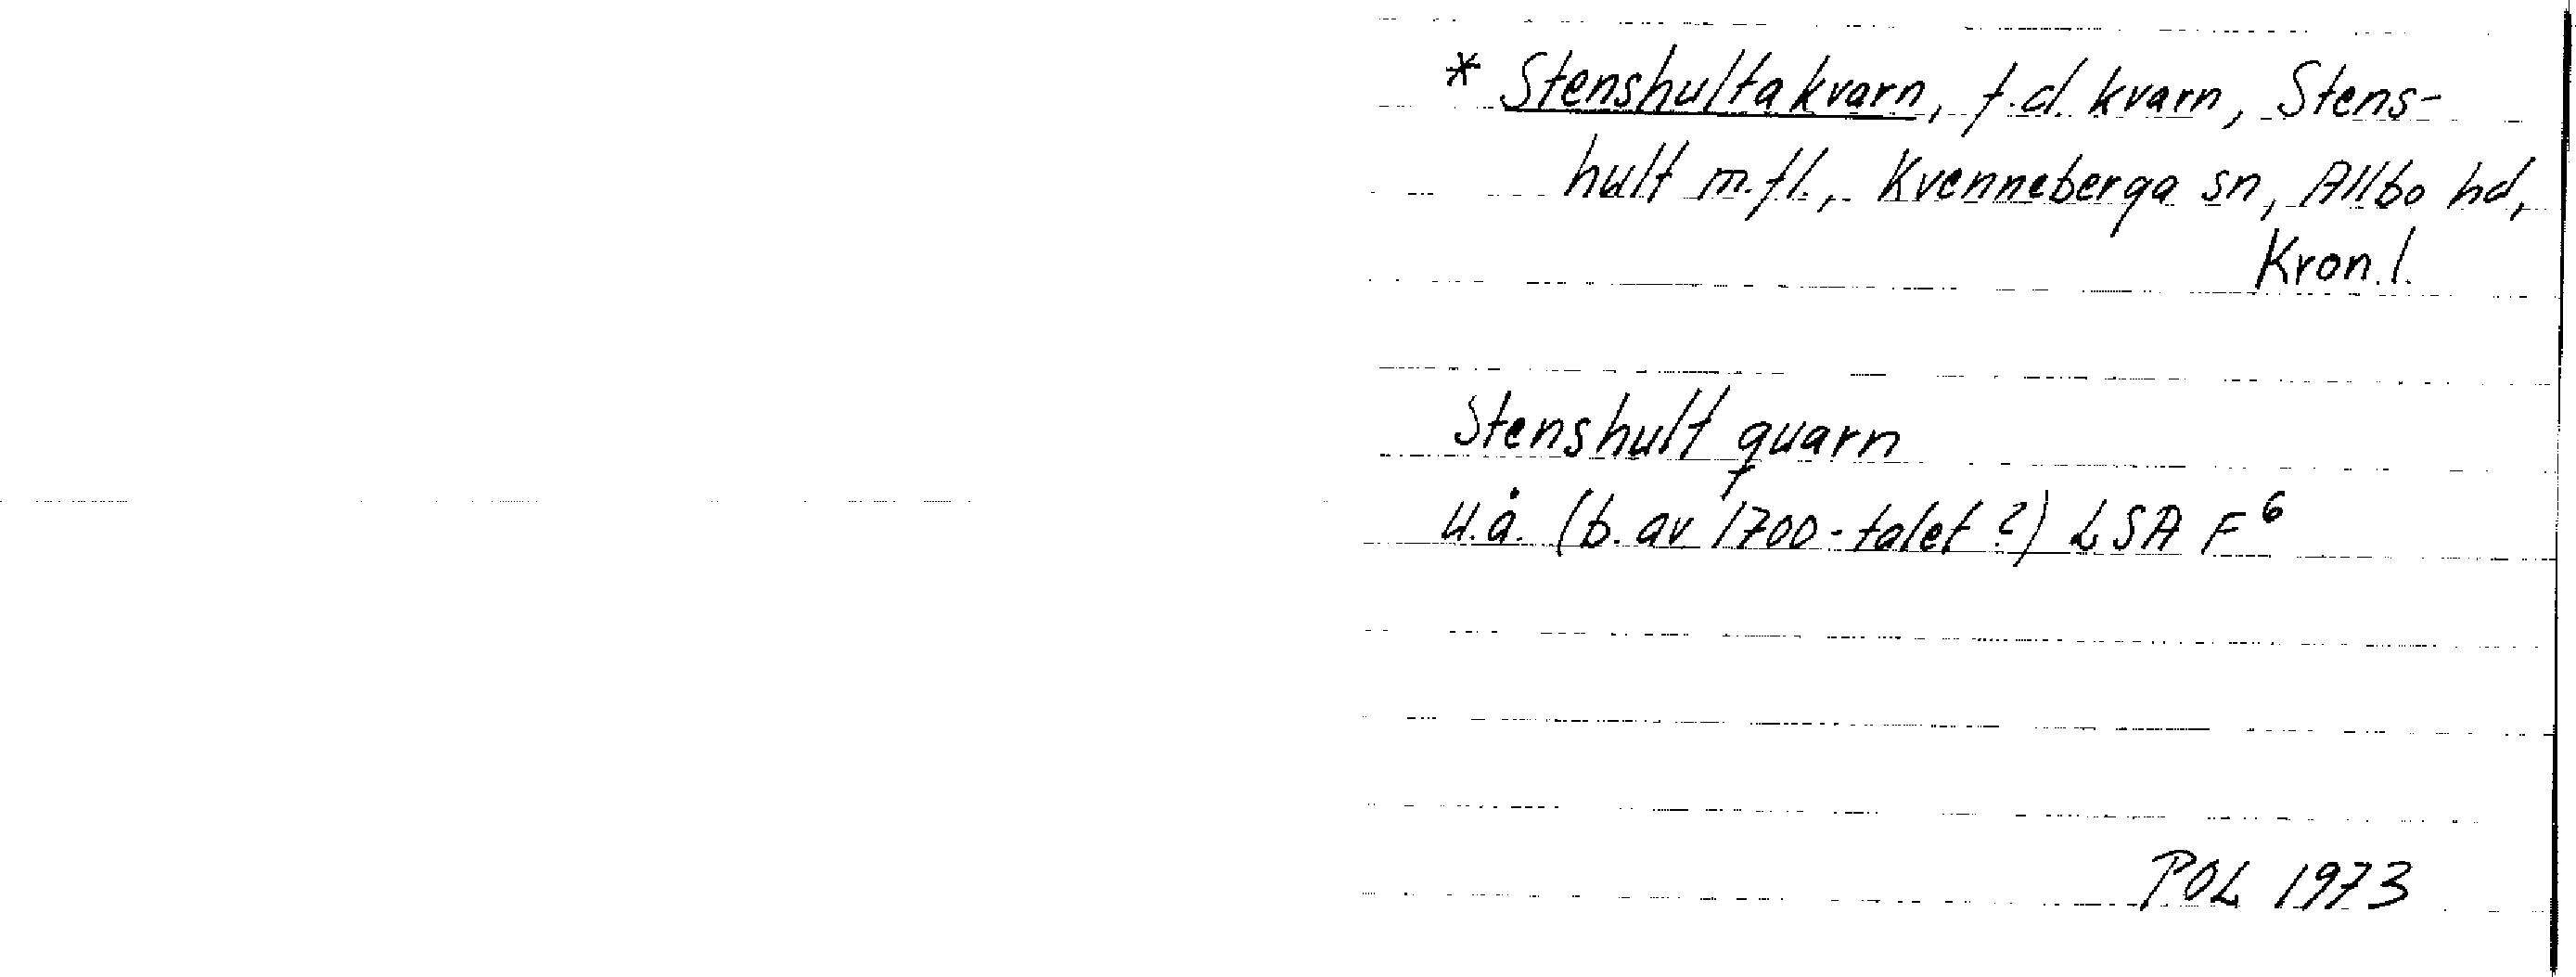 * Stenshultakvarn, f.d. kvarn, Stens-
hult m.fl., Kvenneberga sn, Allbo hd,
Kron.l.
Stenshult quarn
u.å. (b. av 1700-talet?) LSA F⁶
POL 1973